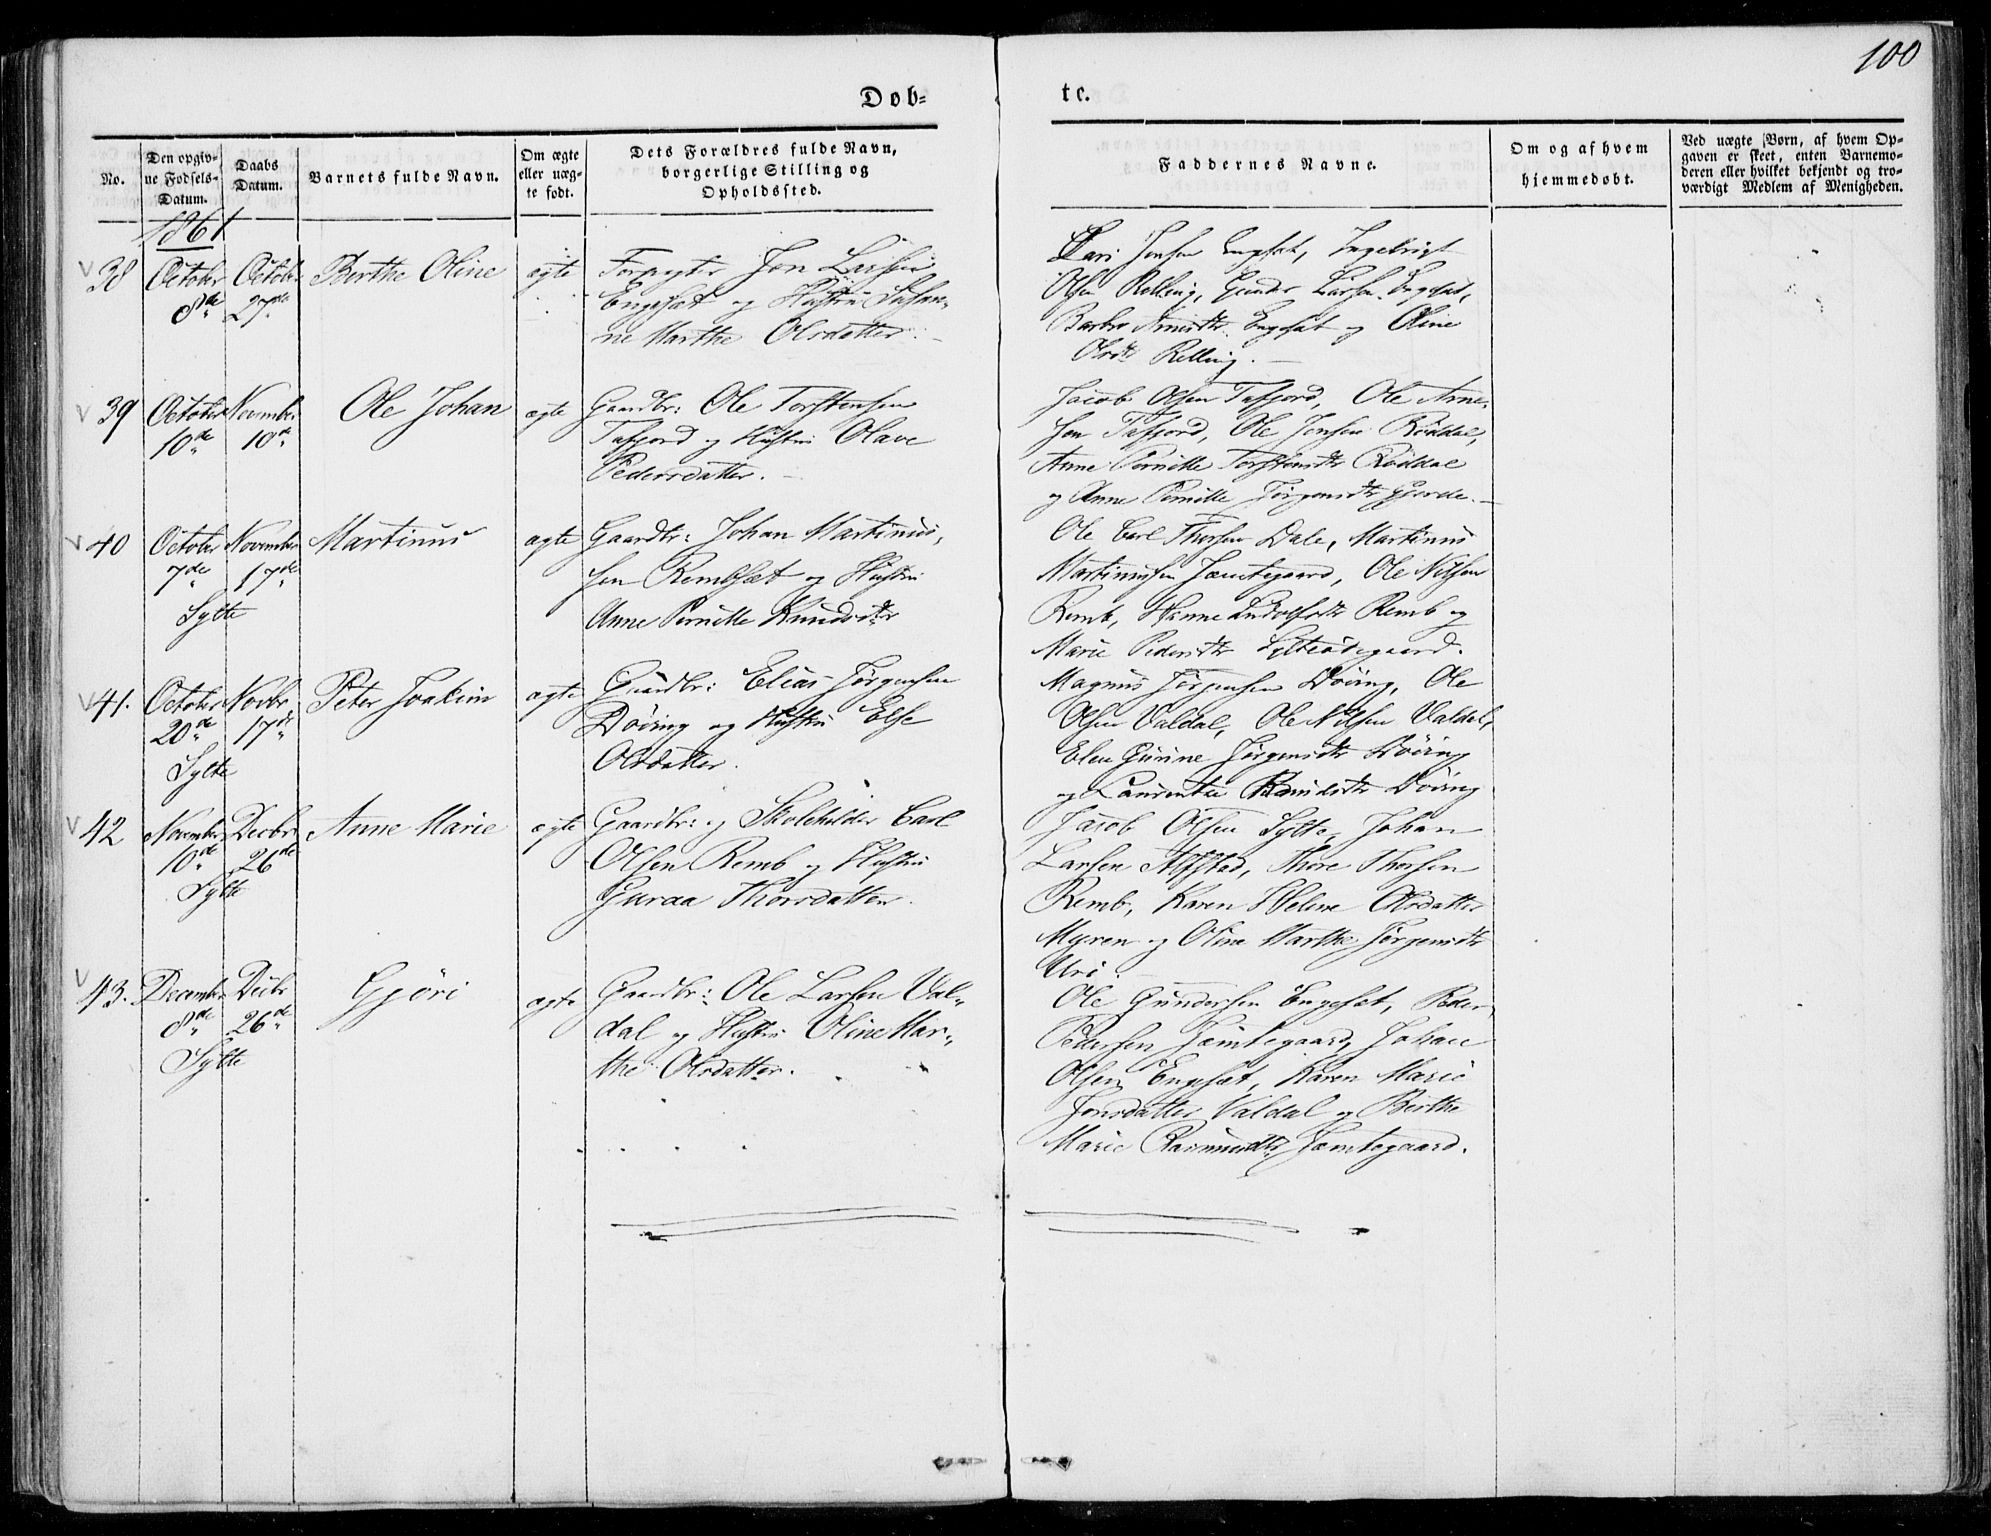 100
Dob=
te.
No.
Den opgiv-
ne Fodsels-
Datum.
Daabs
Datum.
Barnets fulde Navn.
Om ægte
eller uæg-
te fodt.
Dets Forældres fulde Navn,
borgerlige Stilling og
Opholdssted.
Faddernes Navne.
Om og af hvem
hjemmedobt.
Ved uægte Børn, af hvem Op-
gaven er skeet, enten Barnemo-
deren eller hvilket bekjendt og tro-
værdigt Medlem af Menigheden.
1861
38
October
8de
October
27de
Berthe Oline
ægte
Forpagter Jon Larsen
Engesæt og Hustru Susan-
ne Marthe Olsdatter.
Jonsen Engesæt, Ingebrigt
Olsen Relling, Gunder Larsen Engesæt,
Barbro Arnesdtr. Engesæt og Oline
Olsdtr Relling.
39
October
10de
November
10de
Ole Johan
ægte
Gaardbr: Ole Torstensen
Tafjord og Hustru Olave
Pedersdatter.
Jacob Olsen Tafjord, Ole Arne-
sen Tafjord, Ole Jensen Røddal,
Anne Pernille Torstensdtr Røddal
og Anne Pernille Jørgensdtr Gjerde.
40
October
7de
Sylte
November
17de
Martinus
ægte
Gaardbr: Johan Martinus-
sen Rembsæt og Hustru
Anne Pernille Knudsdtr
Ole Carl Thorsen Dale, Martinus
Martinussen Jæmtegaard, Ole Nilsen
Remb, Hanne Ludolfsdtr Remb og
Marie Pedersdtr Sylteødegaard.
41.
October
20de
Sylte
Novbr
17de
Peter Joakim
ægte
Gaardbr: Elias Jørgensen
Døving og Hustru Else
Olsdatter.
Magnus Jørgensen Døving, Ole
Olsen Valdal, Ole Nilsen Valdal,
Elen Gurine Jørgensdtr Døving
og Laurentse Knudsdtr Døving
42
November
10de
Sylte
Decbr
26de
Anne Marie
ægte
Gaardbr: og Skoleholder Carl
Olsen Remb og Hustru
Guraa Thorsdatter.
Jacob Olsen Sylte, Johan
Larsen Alfstad, Thore Thorsen
Remb, Karen Helene Olsdatter
Myren og Oline Marthe Jørgensdtr
Uri.
43.
December
8de
Sylte
Decbr
26de
Gjøri
ægte
Gaardbr: Ole Larsen Val-
dal og Hustru Oline Mar-
the Olsdatter.
Ole Gundersen Engesæt, Peder
Pedersen Jæmtegaard, Johan
Olsen Engesæt, Karen Marie
Jonsdatter Valdal og Berthe
Marie Rasmusdtr Jæmtegaard.